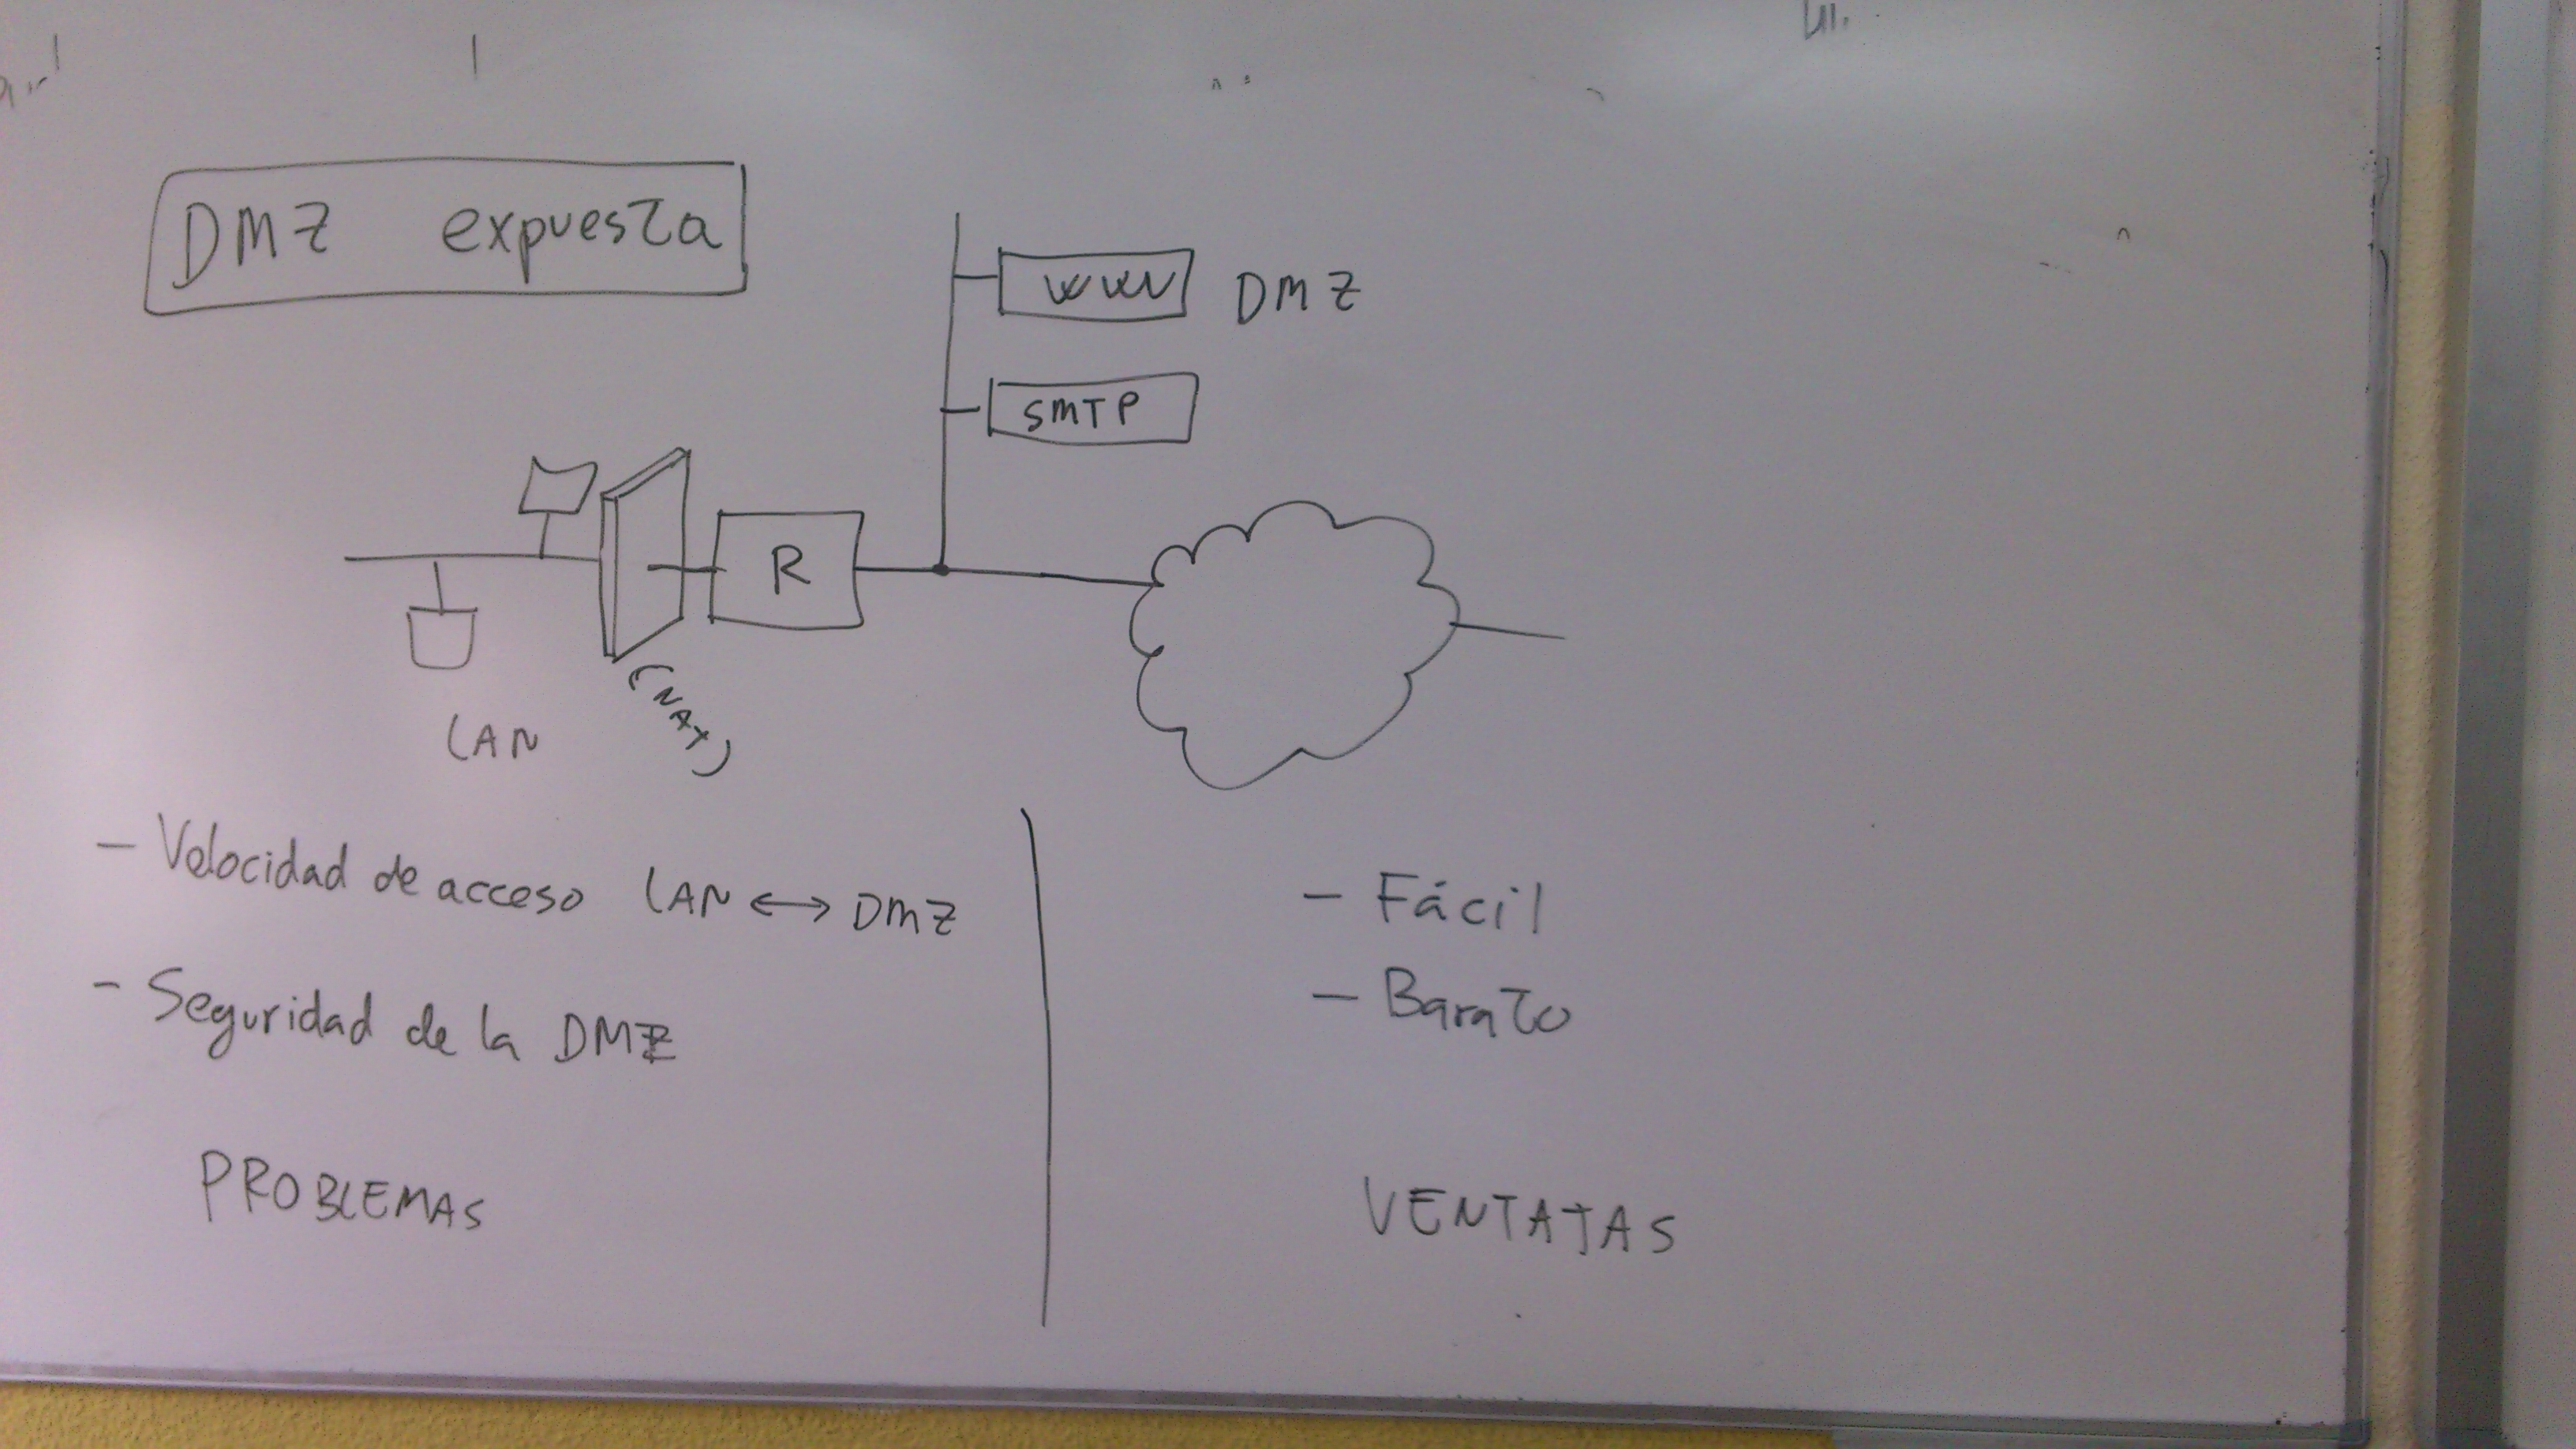 DMZ expuesta
WWW DMZ
SMTP
R
(NAT)
LAN
- Velocidad de acceso LAN ↔ DMZ
- Seguridad de la DMZ
PROBLEMAS
- Fácil
- Barato
VENTAJAS